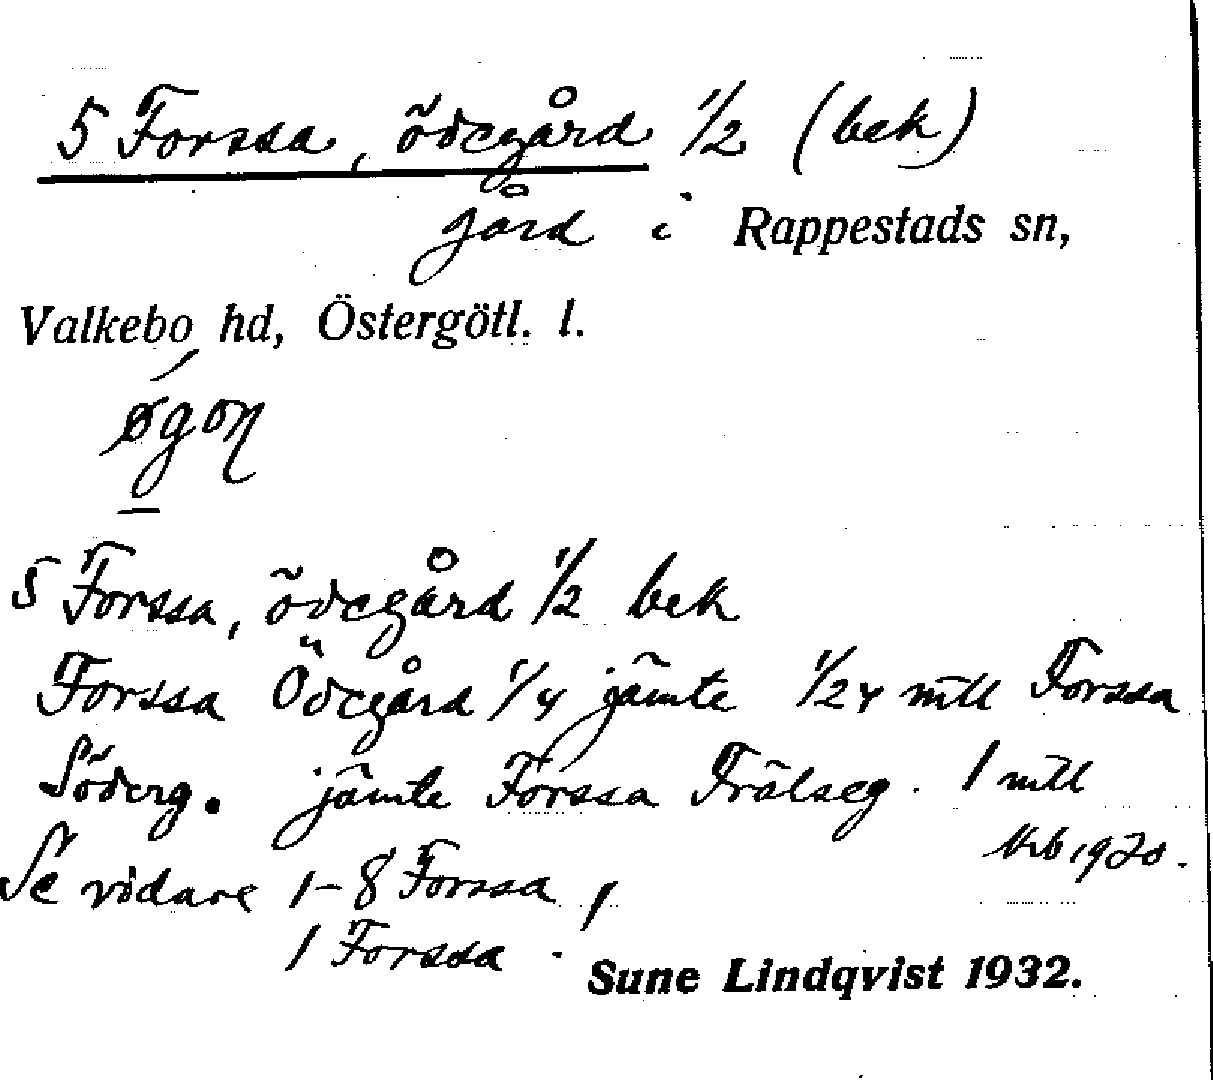 5 Forssa, ödegård 1/2 (bek)
gård i Rappestads sn,
Valkebo hd, Östergötl. l.
5 Forssa, ödegård 1/2 bek
Forssa Ödegård 1/4 jämte 1/24 mtl Forssa
Söderg. jämte Forssa Frälseg. 1 mtl
1920.
Se vidare 1-8 Forssa,
1 Forssa.
Sune Lindqvist 1932.